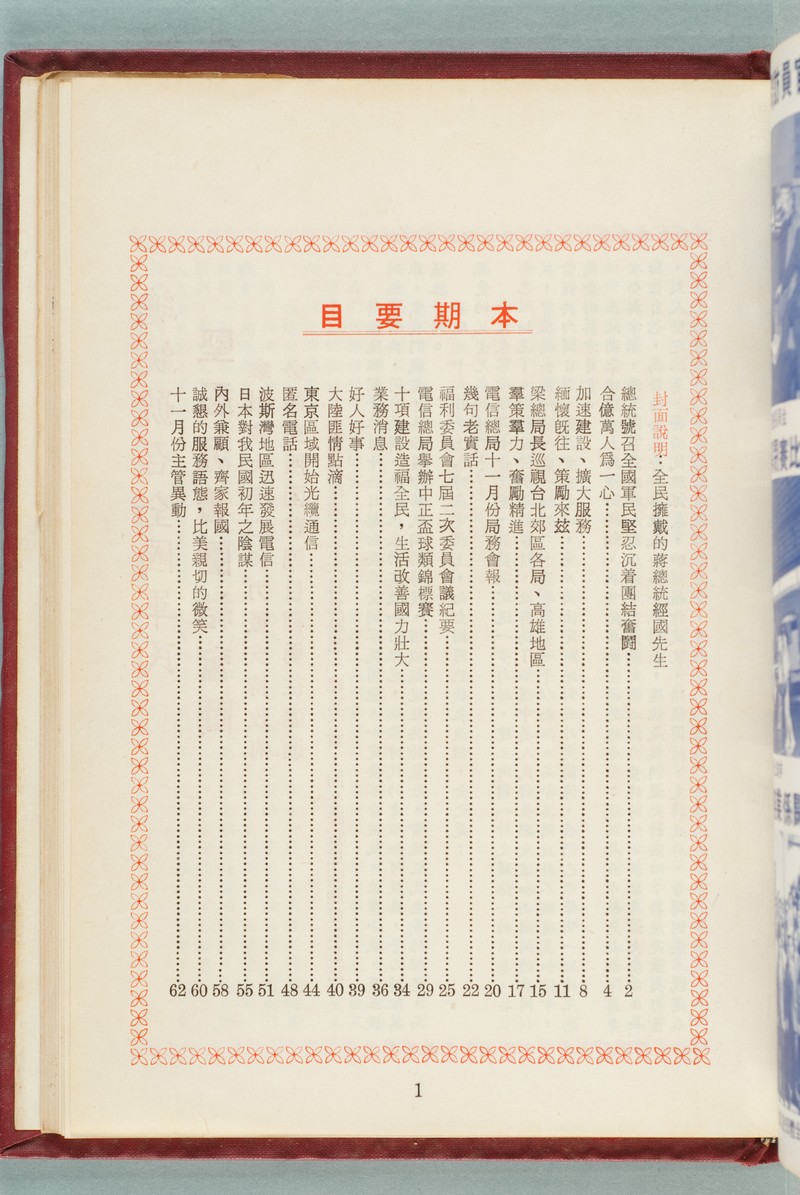 本期要目
封面說明：全民擁戴的蔣總統經國先生
總統號召全國軍民堅忍沉着團結奮鬪⋯⋯2
合億萬人爲一心⋯⋯4
加速建設、擴大服務⋯⋯8
緬懷旣往、策勵來玆⋯⋯11
梁總局長巡視台北郊區各局、高雄地區⋯⋯15
羣策羣力、奮勵精進⋯⋯17
電信總局十一月份局務會報⋯⋯20
幾句老實話⋯⋯22
福利委員會七屆二次委員會議紀要⋯⋯25
電信總局擧辦中正盃球類錦標賽⋯⋯29
十項建設造福全民，生活改善國力壯大⋯⋯34
業務消息⋯⋯36
好人好事⋯⋯39
大陸匪情點滴⋯⋯40
東京區域開始光纜通信⋯⋯44
匿名電話⋯⋯48
波斯灣地區迅速發展電信⋯⋯51
日本對我民國初年之陰謀⋯⋯55
內外兼顧、齊家報國⋯⋯58
誠懇的服務語態，比美親切的微笑⋯⋯60
十一月份主管異動⋯⋯62
1